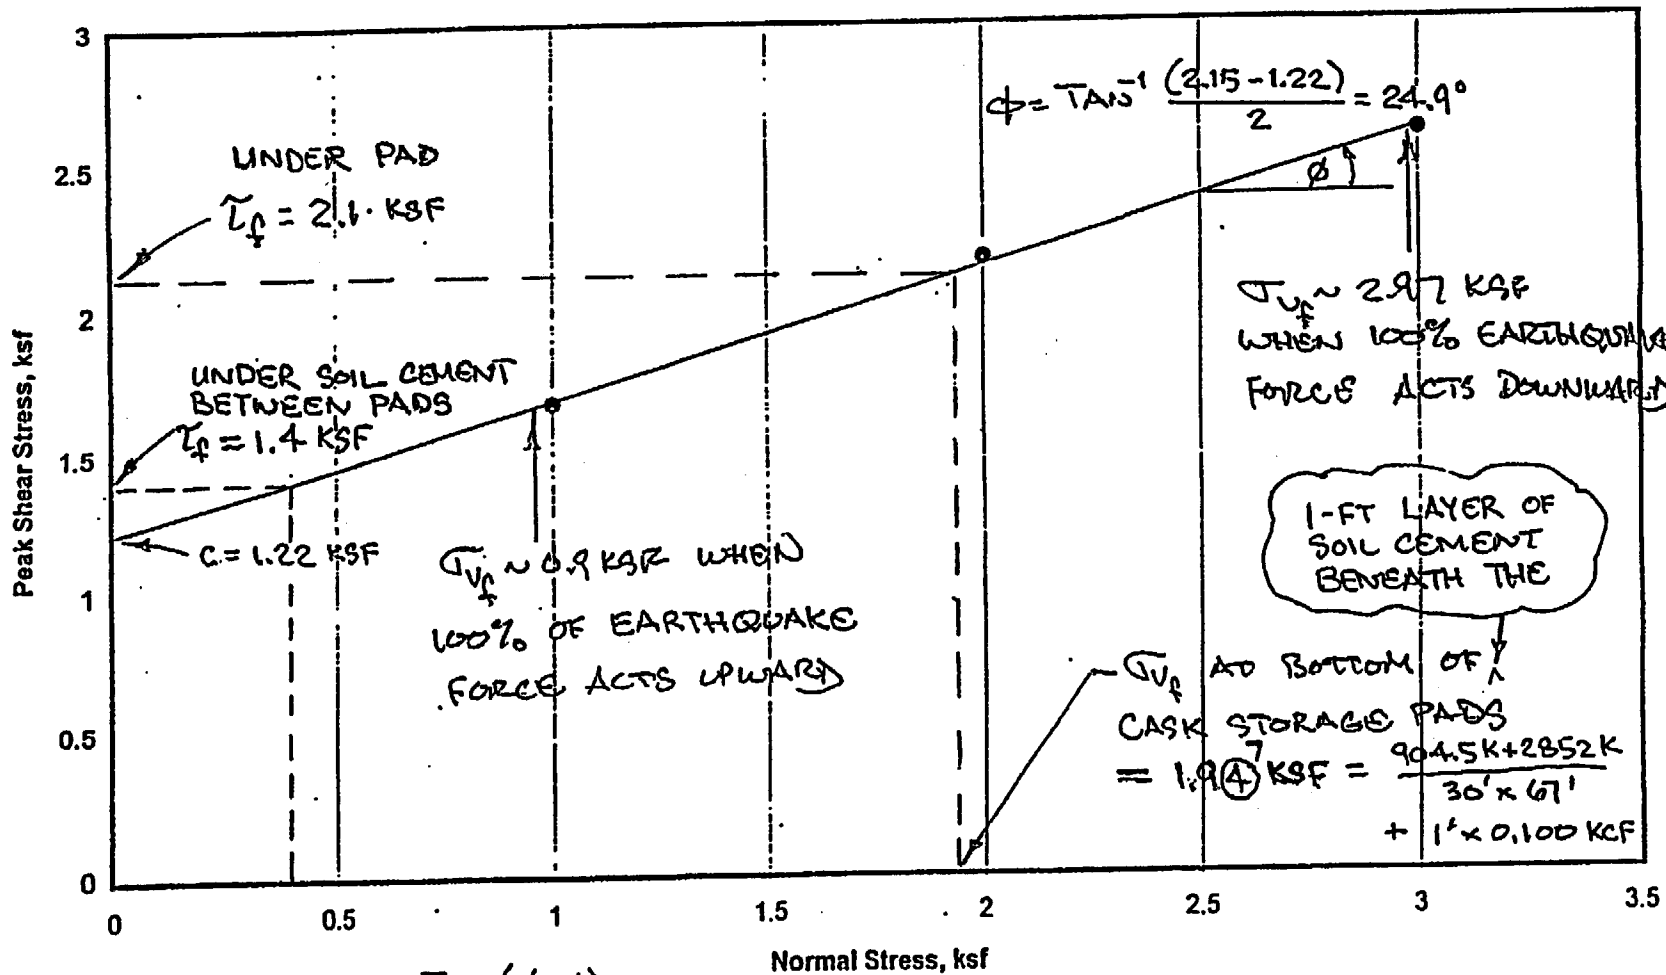 3
2.5
2
1.5
1
0.5
0
Peak Shear Stress, ksf
0
0.5
1
1.5
2
2.5
3
3.5
Normal Stress, ksf
UNDER PAD
τf = 2.1 KSF
UNDER SOIL CEMENT
BETWEEN PADS
τf = 1.4 KSF
C = 1.22 KSF
σvf ~ 0.9 KSF WHEN
100% OF EARTHQUAKE
FORCE ACTS UPWARD
ϕ = TAN⁻¹ (2.15-1.22)
2
= 24.9°
ϕ
σvf ~ 2.97 KSF
WHEN 100% EARTHQUAKE
FORCE ACTS DOWNWARD
1-FT LAYER OF
SOIL CEMENT
BENEATH THE
σvf AT BOTTOM OF ^
CASK STORAGE PADS
7
= 1.94 KSF = 904.5K+2852K
30' x 67'
+ 1' x 0.100 KCF